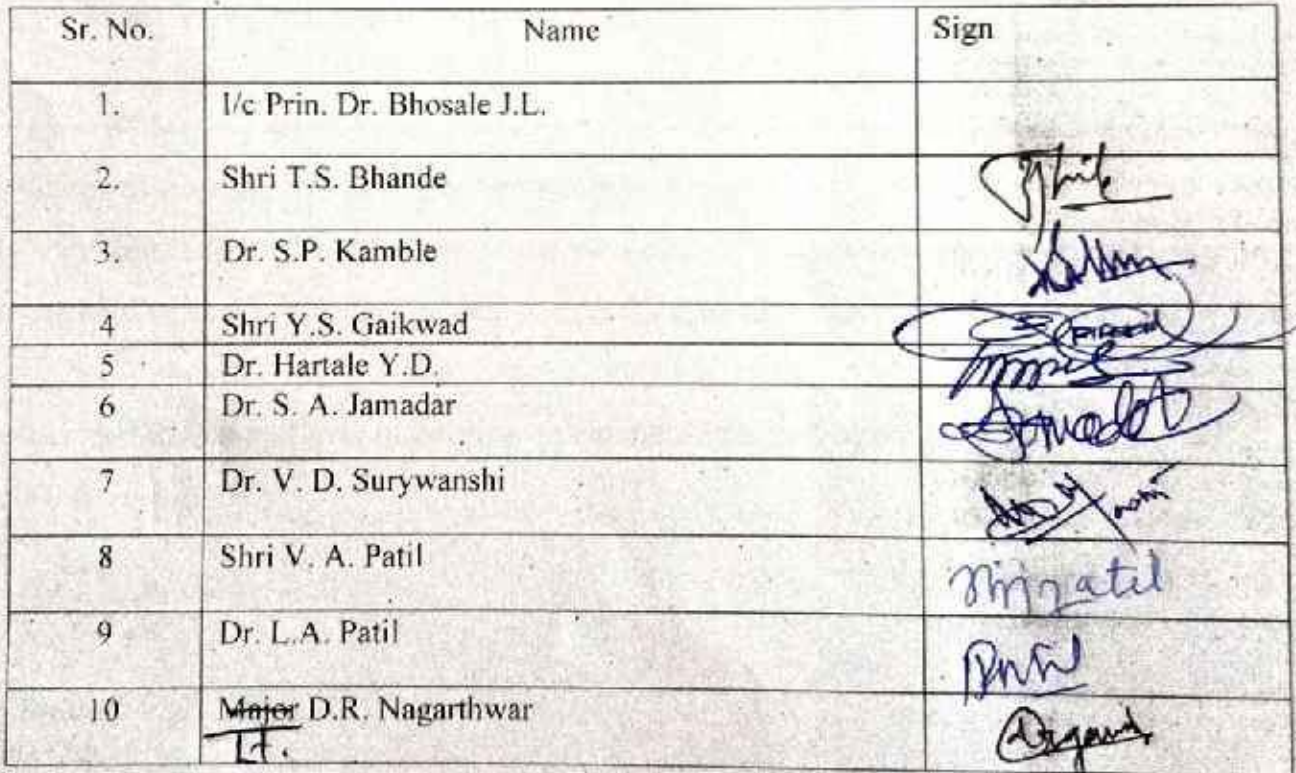 Sr. No. Name Sign
1. I/c Prin. Dr. Bhosale J.L.
2. Shri T.S. Bhande
3. Dr. S.P. Kamble
4 Shri Y.S. Gaikwad
5 Dr. Hartale Y.D.
6 Dr. S. A. Jamadar
7 Dr. V. D. Surywanshi
8 Shri V. A. Patil
9 Dr. L.A. Patil
10 Major D.R. Nagarthwar
Lt.